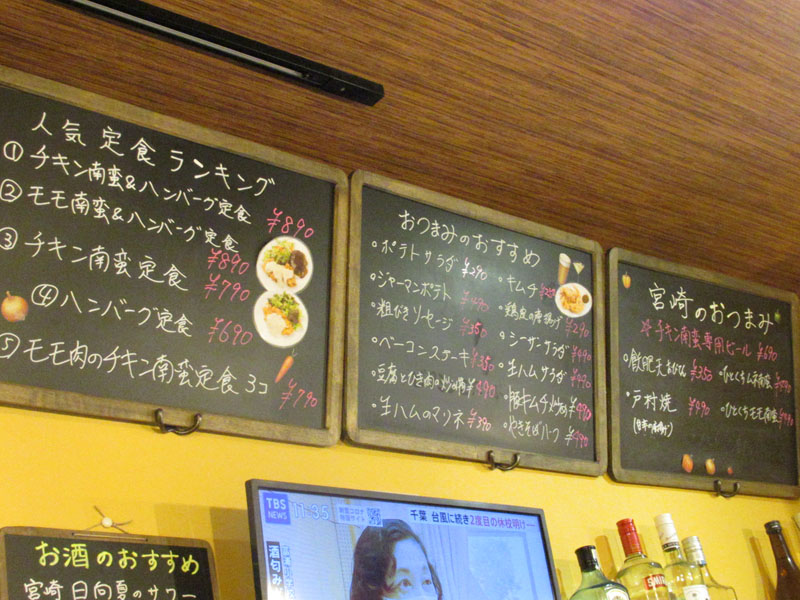 人気定食ランキング
① チキン南蛮&ハンバーグ定食 ¥890
② モモ南蛮&ハンバーグ定食 ¥890
③ チキン南蛮定食 ¥790
④ ハンバーグ定食 ¥690
⑤ モモ肉のチキン南蛮定食 3コ ¥790
おつまみのおすすめ
・ポテトサラダ ¥290
・ジャーマンポテト ¥490
・粗びきソーセージ ¥350
・ベーコンステーキ ¥350
・豆腐とひき肉の炒め ¥490
・生ハムのマリネ ¥390
・キムチ
・鶏皮の唐揚げ ¥290
・シーザーサラダ ¥490
・生ハムサラダ ¥490
・豚キムチ炒め ¥490
・やきそばハーフ ¥490
宮崎のおつまみ
☆チキン南蛮専用ビール ¥690
・飫肥天おびてん ¥350
・戸村焼 ¥490
・ひとくちムネ南蛮
・ひとくちモモ南蛮
お酒のおすすめ
宮崎 日向夏のサワー
TBS NEWS
11:35
新型コロナ
特設サイト
千葉 台風に続き2度目の休校明け…
酒匂み
SMIRN